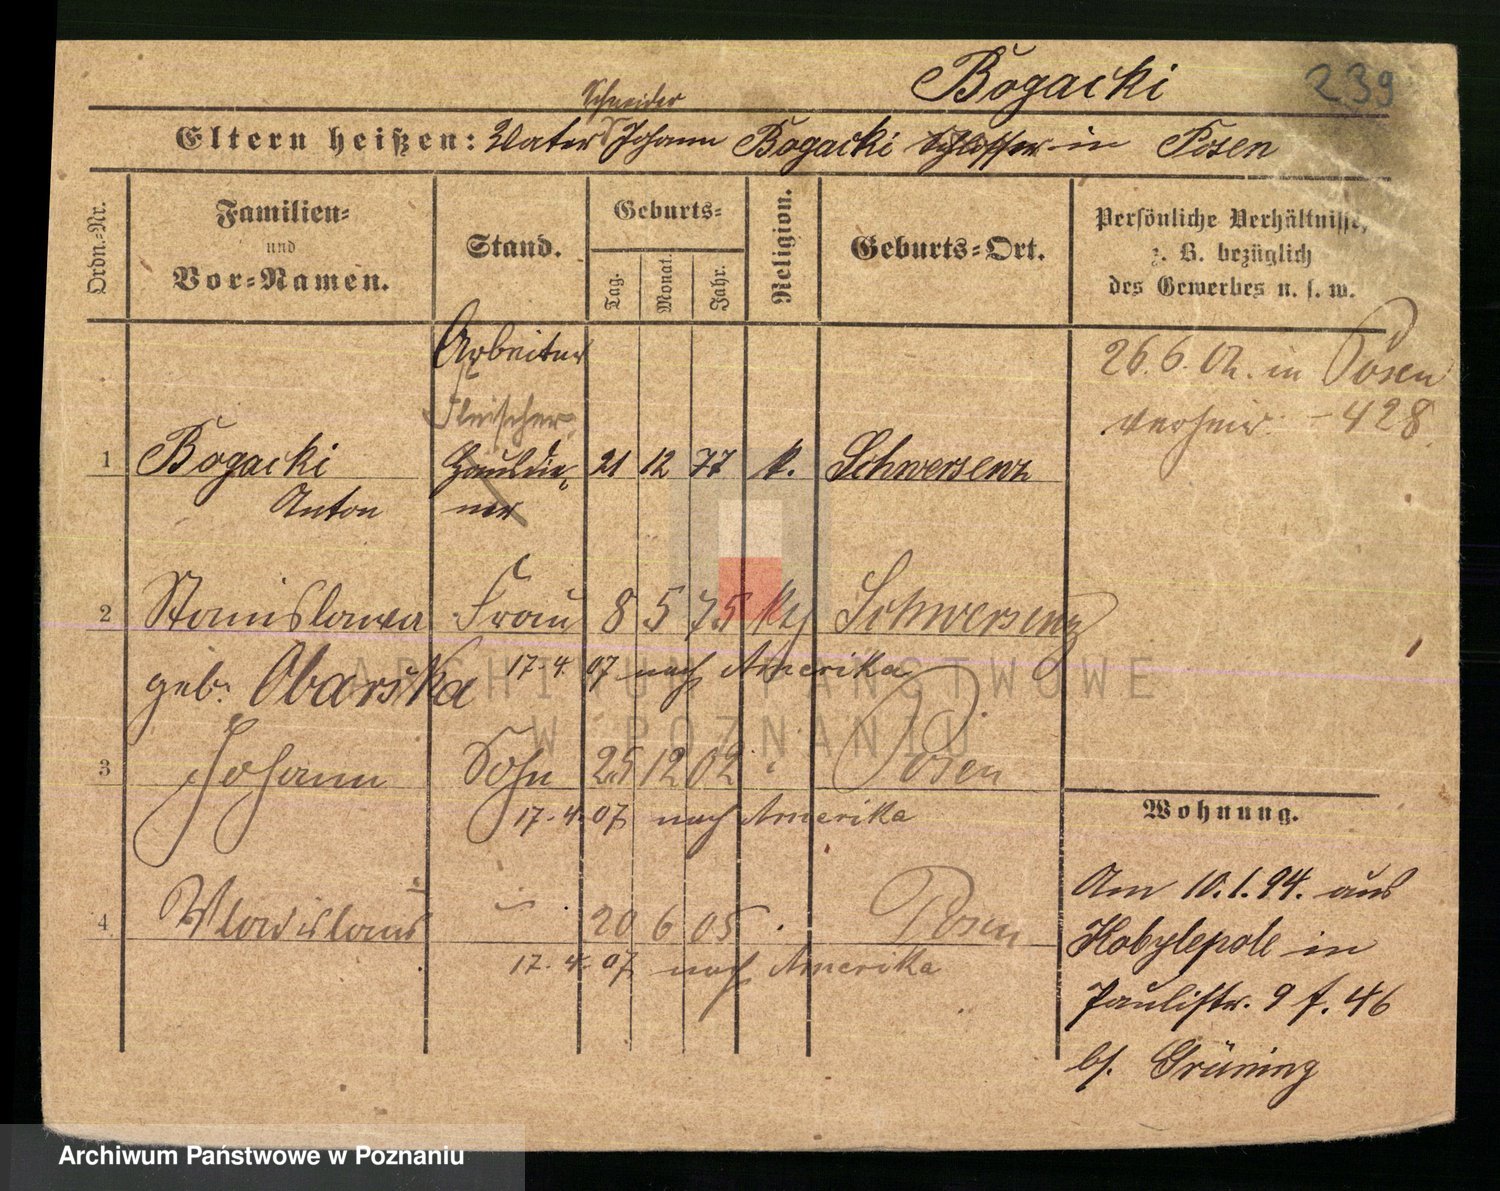 Bogacki 239
Schneider
Eltern heißen: Vater Johann Bogacki Schlosser in Posen
Ordn.-Nr.
Familien-
und
Vor-Namen.
Stand.
Geburts-
Tag.
Monat.
Jahr.
Religion.
Geburts-Ort.
Persönliche Verhältnisse,
z. B. bezüglich
des Gewerbes u. s. w.
Arbeiter
Fleischer
1 Bogacki Hausdie- 21 12 77 k. Schwersenz
Anton ner
26.6.02. in Posen
verheir. - 428.
2 Stanislawa Frau 8 5 75 k Schwersenz
geb. Obarska 17.4.07 nach Amerika
3 Johann Sohn 25 12 02 Posen
17.4.07 nach Amerika
4 Wladislaus 20 6 05 Posen
17.4.07 nach Amerika
Wohnung.
Am 10.1.94. aus
Kobylepole in
Paulistr. 9 f. 46
bf. Grüning
ARCHIWUM PAŃSTWOWE
W POZNANIU
Archiwum Państwowe w Poznaniu